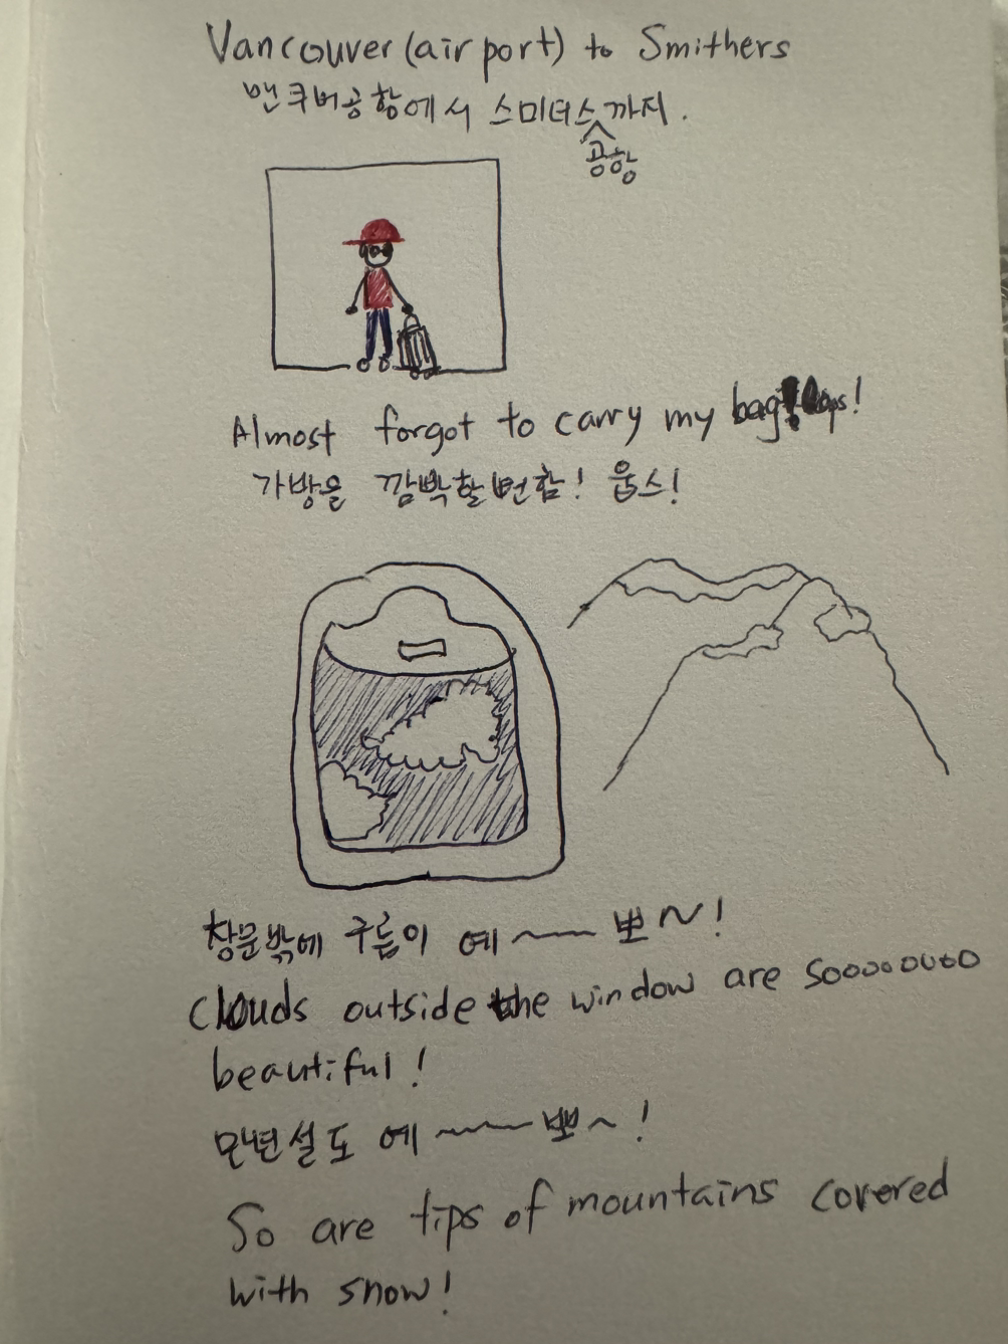 Vancouver (airport) to Smithers
밴쿠버공항에서 스미더스까지.
공항
Almost forgot to carry my bag! ups!
가방을 깜박할뻔함! 웁스!
창문밖에 구름이 예~~뽀~!
clouds outside the window are sooooooooo
beautiful!
만년설도 예~~뽀~!
So are tips of mountains covered
with snow!